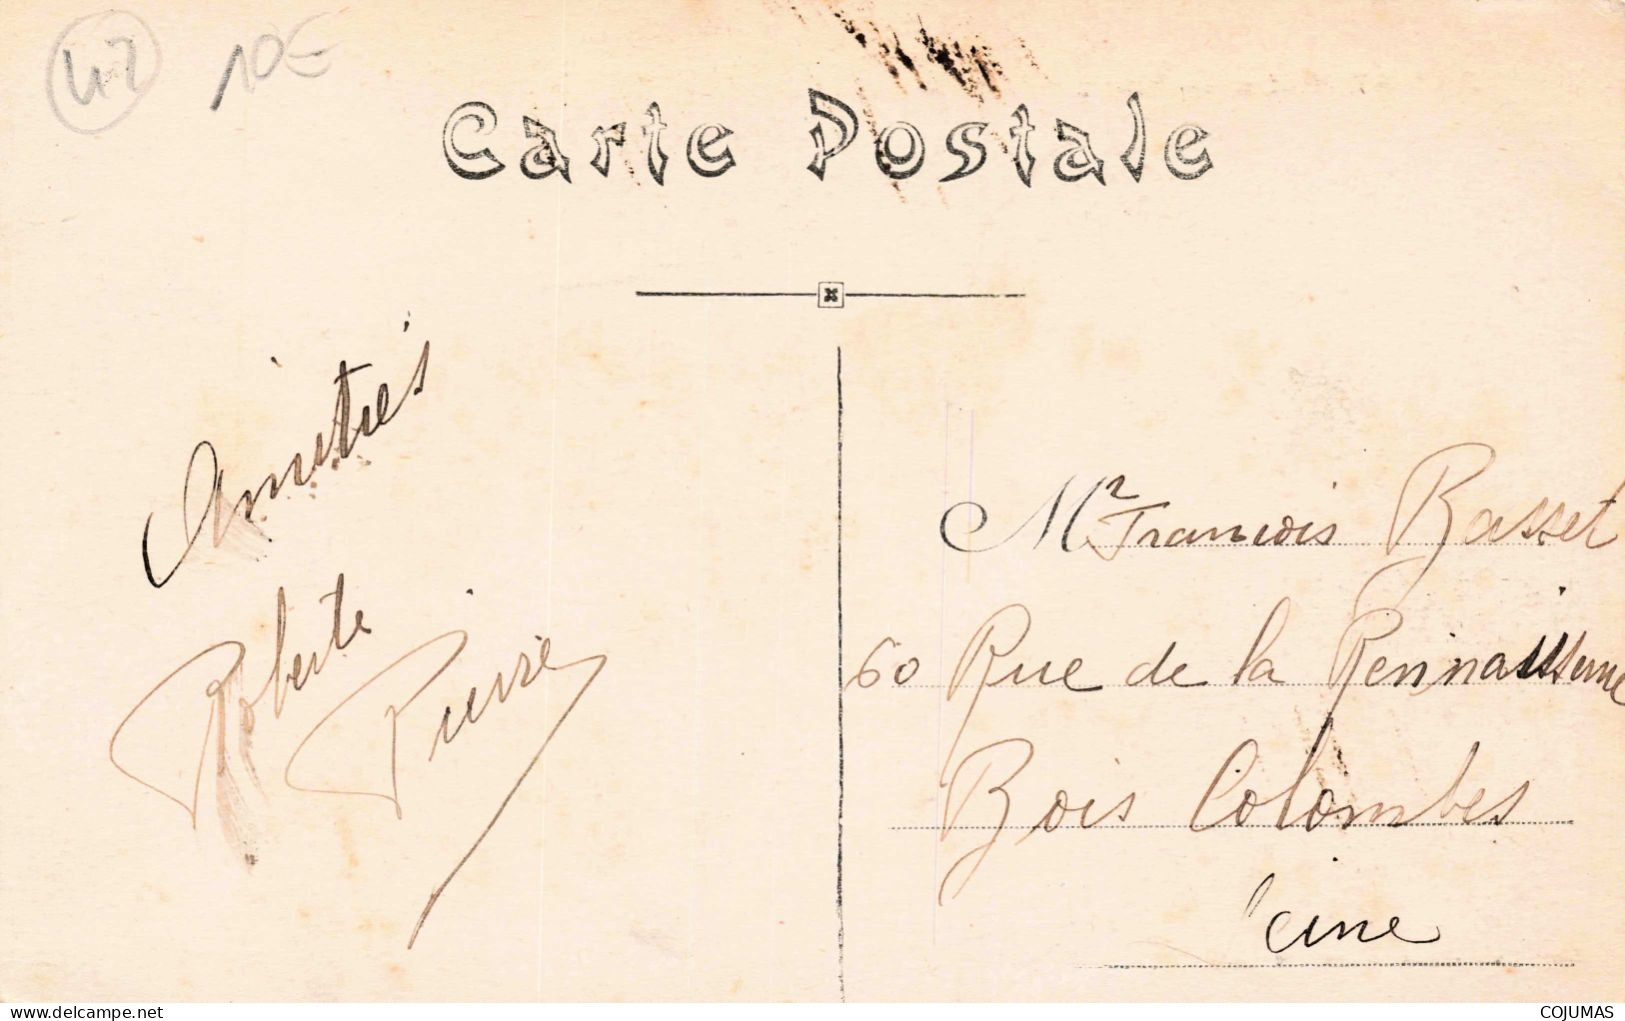 42 10€
Carte Postale
Amitiés
Roberte
Pierre
Mr Francois Basset
60 Rue de la Rennaissanne
Bois Colombes
Seine
delcampe.net
COJUMAS